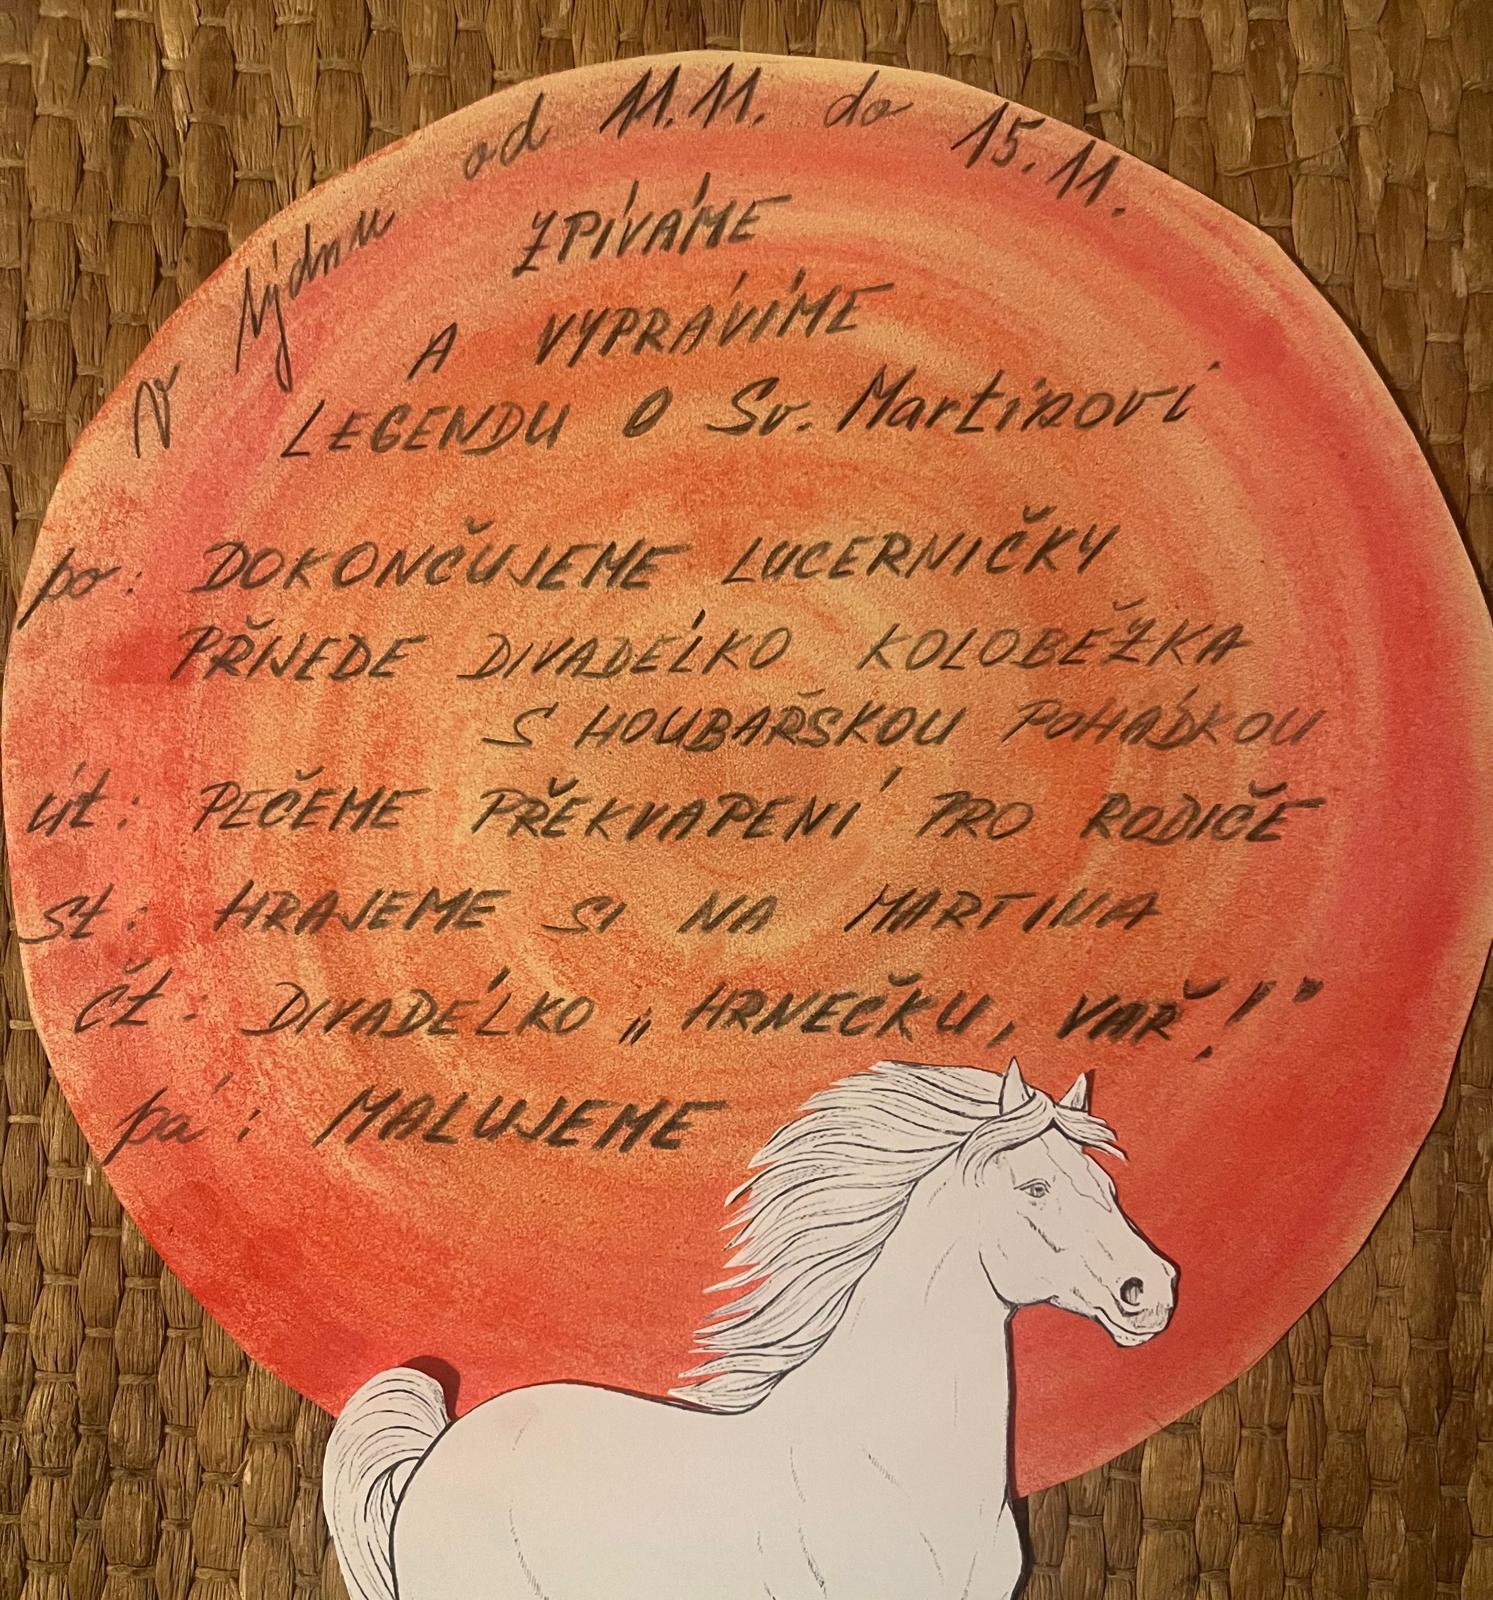 v týdnu od 11.11. do 15.11.
ZPÍVÁME
A VYPRÁVÍME
LEGENDU O Sv. Martinovi
po: DOKONČUJEME LUCERNIČKY
PŘIJEDE DIVADÉLKO KOLOBĚŽKA
S HOUBAŘSKOU POHÁDKOU
út: PEČEME PŘEKVAPENÍ PRO RODIČE
st: HRAJEME SI NA MARTINA
čt: DIVADÉLKO „HRNEČKU, VAŘ!"
pá: MALUJEME